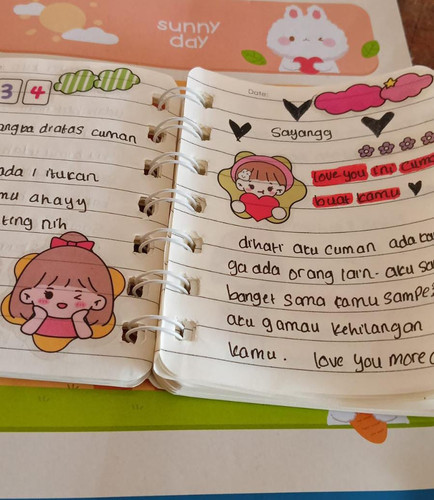 sunny
day
3 4
diatas cuman
ada 1 itukan
mu ahayy
nih
Date:
Sayangg
love you ini cuma
buat kamu
dihati aku cuman ada
ga ada orang lain. aku
banget sama kamu sampe
aku gamau kehilangan
kamu. love you more